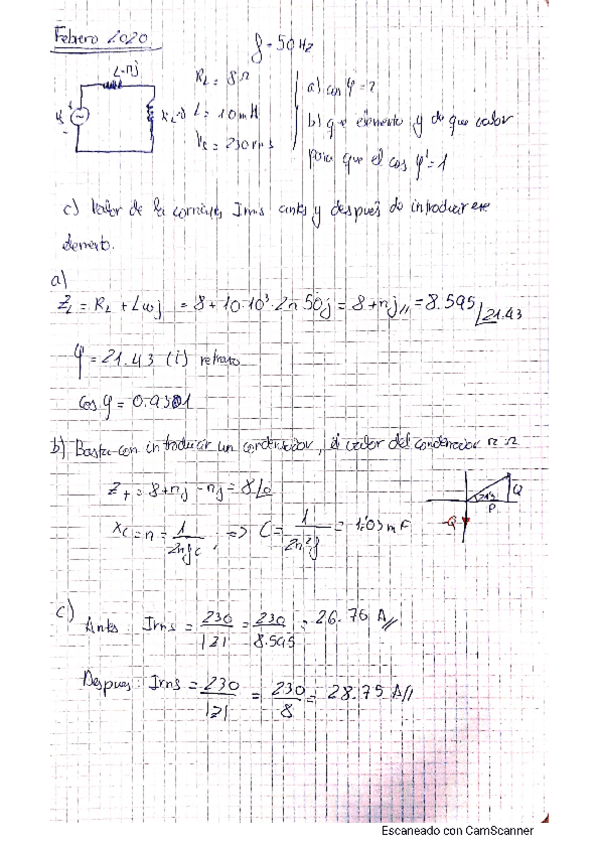 Febrero 2020
f = 50 Hz
RL = 8 Ω
L = 10 mH
= 230 rms
a) cos φ = ?
b) que elemento y de que valor
para que el cos φ' = 1
c) Valor de la corriente Irms antes y después de introducir ese
elemento.
a)
ZL = RL + Lωj = 8 + 10·10³·2π·50j = 8 + πj = 8.595 ∠21.43
φ = 21.43 (i) retraso
cos φ = 0.9301
b) Basta con introducir un condensador, el valor del condensador π Ω
ZT = 8 + πj - πj = 8 ∠0
XC = π = 1/(2πfC) => C = 1/(2π²f) = 1.03 mF
Q
P
-Q
c) Antes: Irms = 230/|Z| = 230/8.595 = 26.76 A
Despues: Irms = 230/|Z| = 230/8 = 28.75 A
Escaneado con CamScanner